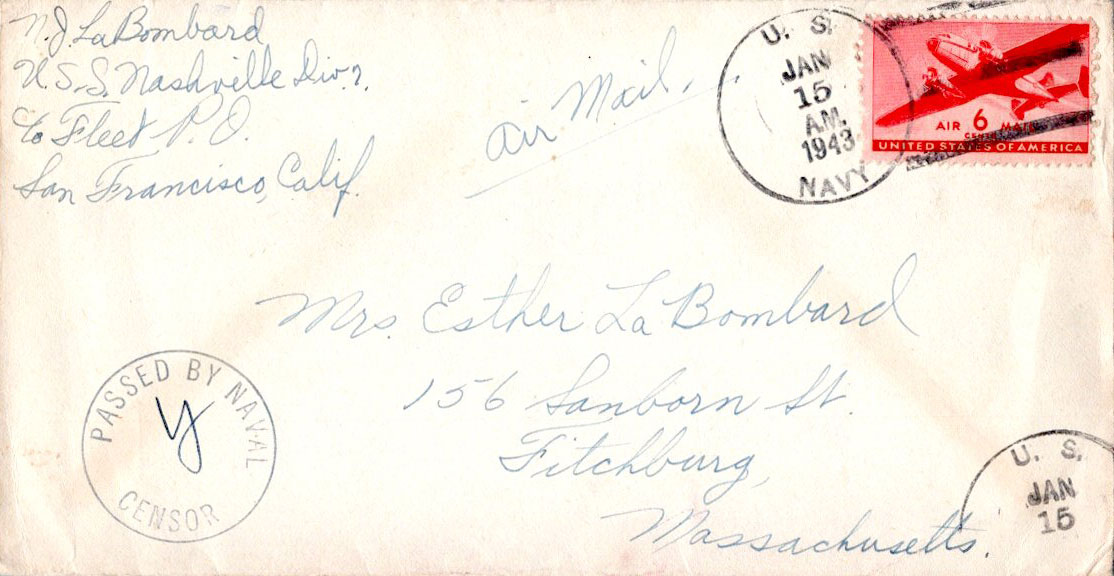 N.J. LaBombard
U.S.S. Nashville Div.
c/o Fleet P.O.
San Francisco, Calif.
Air Mail.
U. S.
JAN
15
A.M.
1943
NAVY
AIR 6 MAIL
CENTS
UNITED STATES OF AMERICA
Mrs. Esther La Bombard
156 Sanborn St.
Fitchburg,
Massachusetts.
PASSED BY NAVAL
y
CENSOR
U. S.
JAN
15